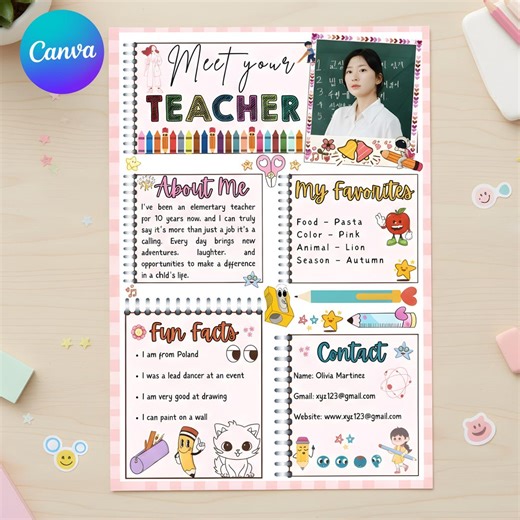 Canva
Meet your
TEACHER
About Me
I've been an elementary teacher
for 10 years now, and I can truly
say it's more than just a job it's a
calling. Every day brings new
adventures, laughter, and
opportunities to make a difference
in a child's life.
My Favorites
Food - Pasta
Color - Pink
Animal - Lion
Season - Autumn
Fun Facts
• I am from Poland
• I was a lead dancer at an event
• I am very good at drawing
• I can paint on a wall
Contact
Name: Olivia Martinez
Gmail: xyz123@gmail.com
Website: www.xyz123@gmail.com